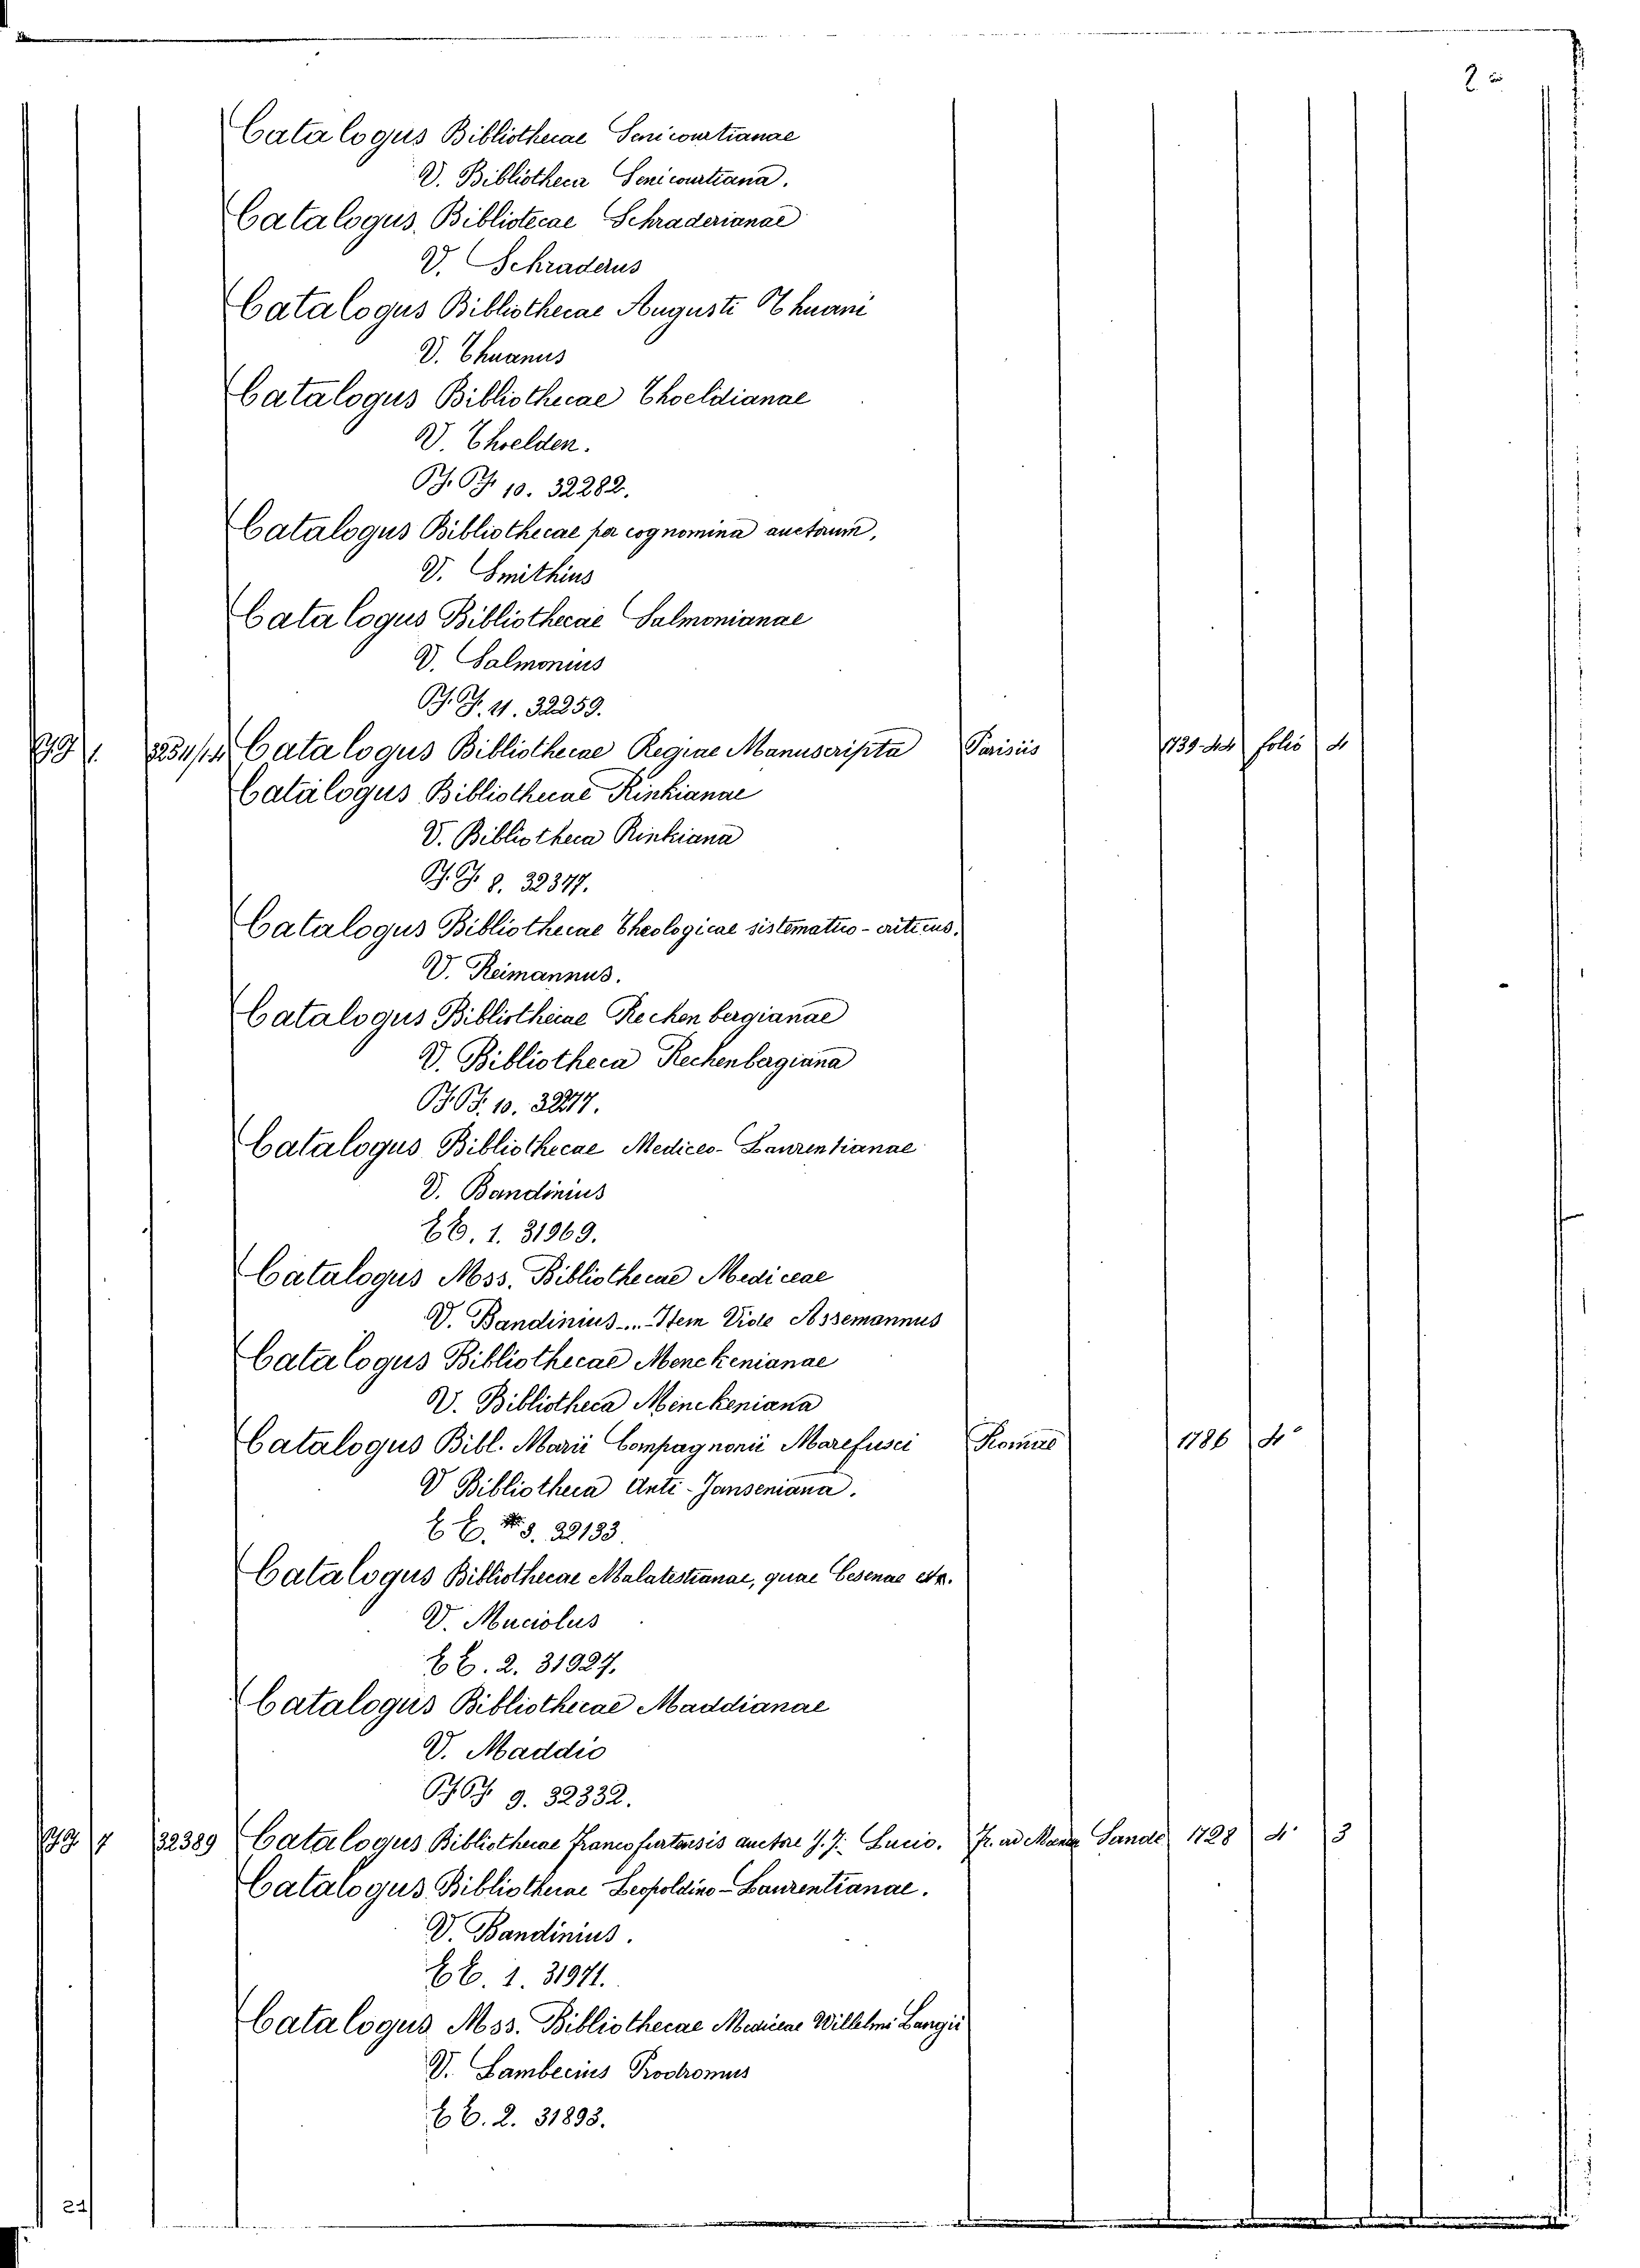 2
Catalogus Bibliothecae Senicourtianae
V. Bibliotheca Senicourtiana.
Catalogus Bibliotecae Schraderianae
V. Schraderus
Catalogus Bibliothecae Augusti Thuani
V. Thuanus
Catalogus Bibliothecae Thoeldianae
V. Thoelden.
10. 32282.
Catalogus Bibliothecae per cognomina auctorum,
V. Smithius
Catalogus Bibliothecae Salmonianae
V. Salmonius
11. 32259.
1. Catalogus Bibliothecae Regiae Manuscripta Parisiis 1739-44 folio 4
Catalogus Bibliothecae Rinkianae
V. Bibliotheca Rinkiana
8. 32347.
Catalogus Bibliothecae Theologicae sistematico-criticus.
V. Reimannus.
Catalogus Bibliothecae Rechenbergianae
V. Bibliotheca Rechenbergiana
10.
Catalogus Bibliothecae Mediceo-Laurentianae
V. Bandinius
CC. 1. 31969.
Catalogus Mss. Bibliothecae Mediceae
V. Bandinius.... Item Vide Assemannus
Catalogus Bibliothecae Menckenianae
V. Bibliotheca Minckeniana
Catalogus Bibl. Marii Compagnonii Marefusci Romae 1786 4°
V Bibliotheca Anti-Janseniana.
CC. 3. 32133.
Catalogus Bibliothecae Malatestianae, quae Cesenae etc.
V. Muciolus
CC. 2. 31927.
Catalogus Bibliothecae Maddianae
V. Maddio
9. 32332.
7 32389 Catalogus Bibliothecae Francofurtensis auctore J. J. Lucio. Fr. ad Sande 1728 4° 3
Catalogus Bibliothecae Leopoldino-Laurentianae.
V. Bandinius.
CC. 1. 31971.
Catalogus Mss. Bibliothecae Mediceae Willelmi Langii
V. Lambecius Prodromus
CC. 2. 31893.
21